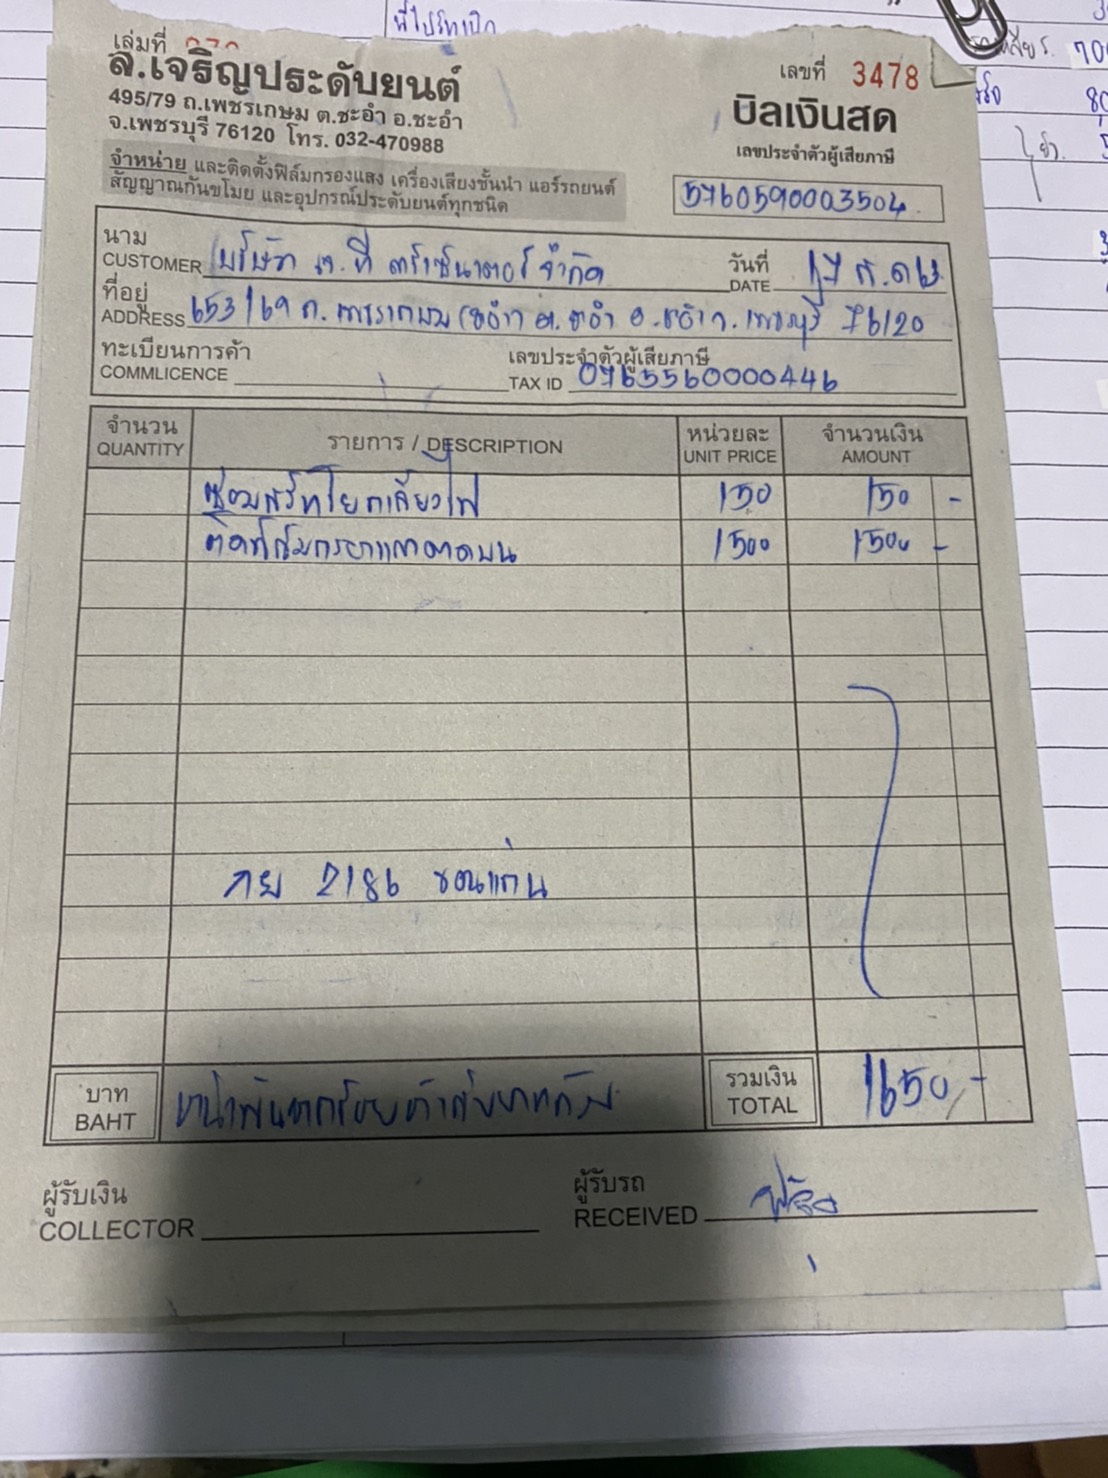 เล่มที่
ล.เจริญประดับยนต์
495/79 ถ.เพชรเกษม ต.ชะอำ อ.ชะอำ
จ.เพชรบุรี 76120 โทร. 032-470988
จำหน่าย และติดตั้งฟิล์มกรองแสง เครื่องเสียงชั้นนำ แอร์รถยนต์
สัญญาณกันขโมย และอุปกรณ์ประดับยนต์ทุกชนิด
เลขที่ 3478
บิลเงินสด
เลขประจำตัวผู้เสียภาษี
5760590003504
นาม
CUSTOMER บริษัท เจ.ที คาร์เซ็นเตอร์ จำกัด
วันที่
DATE 17 ก.ค 63
ที่อยู่
ADDRESS 653/69 ถ. เพชรเกษม ต. ชะอำ อ. ชะอำ จ. เพชรบุรี 76120
ทะเบียนการค้า
COMMLICENCE
เลขประจำตัวผู้เสียภาษี
TAX ID 0765560000446
จำนวน
QUANTITY
รายการ / DESCRIPTION
หน่วยละ
UNIT PRICE
จำนวนเงิน
AMOUNT
ซ่อม 150 150 -
ติดฟิล์มกรองแสงคาดบน 1500 1500 -
กย 2186 ขอนแก่น
บาท
BAHT
หนึ่งพันหกร้อยห้าสิบบาทถ้วน
รวมเงิน
TOTAL
1650 -
ผู้รับเงิน
COLLECTOR
ผู้รับรถ
RECEIVED